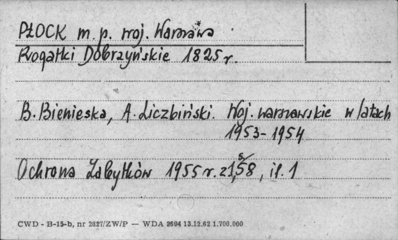 PŁOCK m.p. woj. Warszawa
Rogatki Dobrzyńskie 1825 r.
B. Bienieska, A. Liczbiński. Woj. warszawskie w latach
1953-1954
Ochrona Zabytków 1955 r. z 1, s. 58, il. 1
CWD - B-15-b, nr 2027/ZW/P — WDA 2604 13.12.62 1.700.000